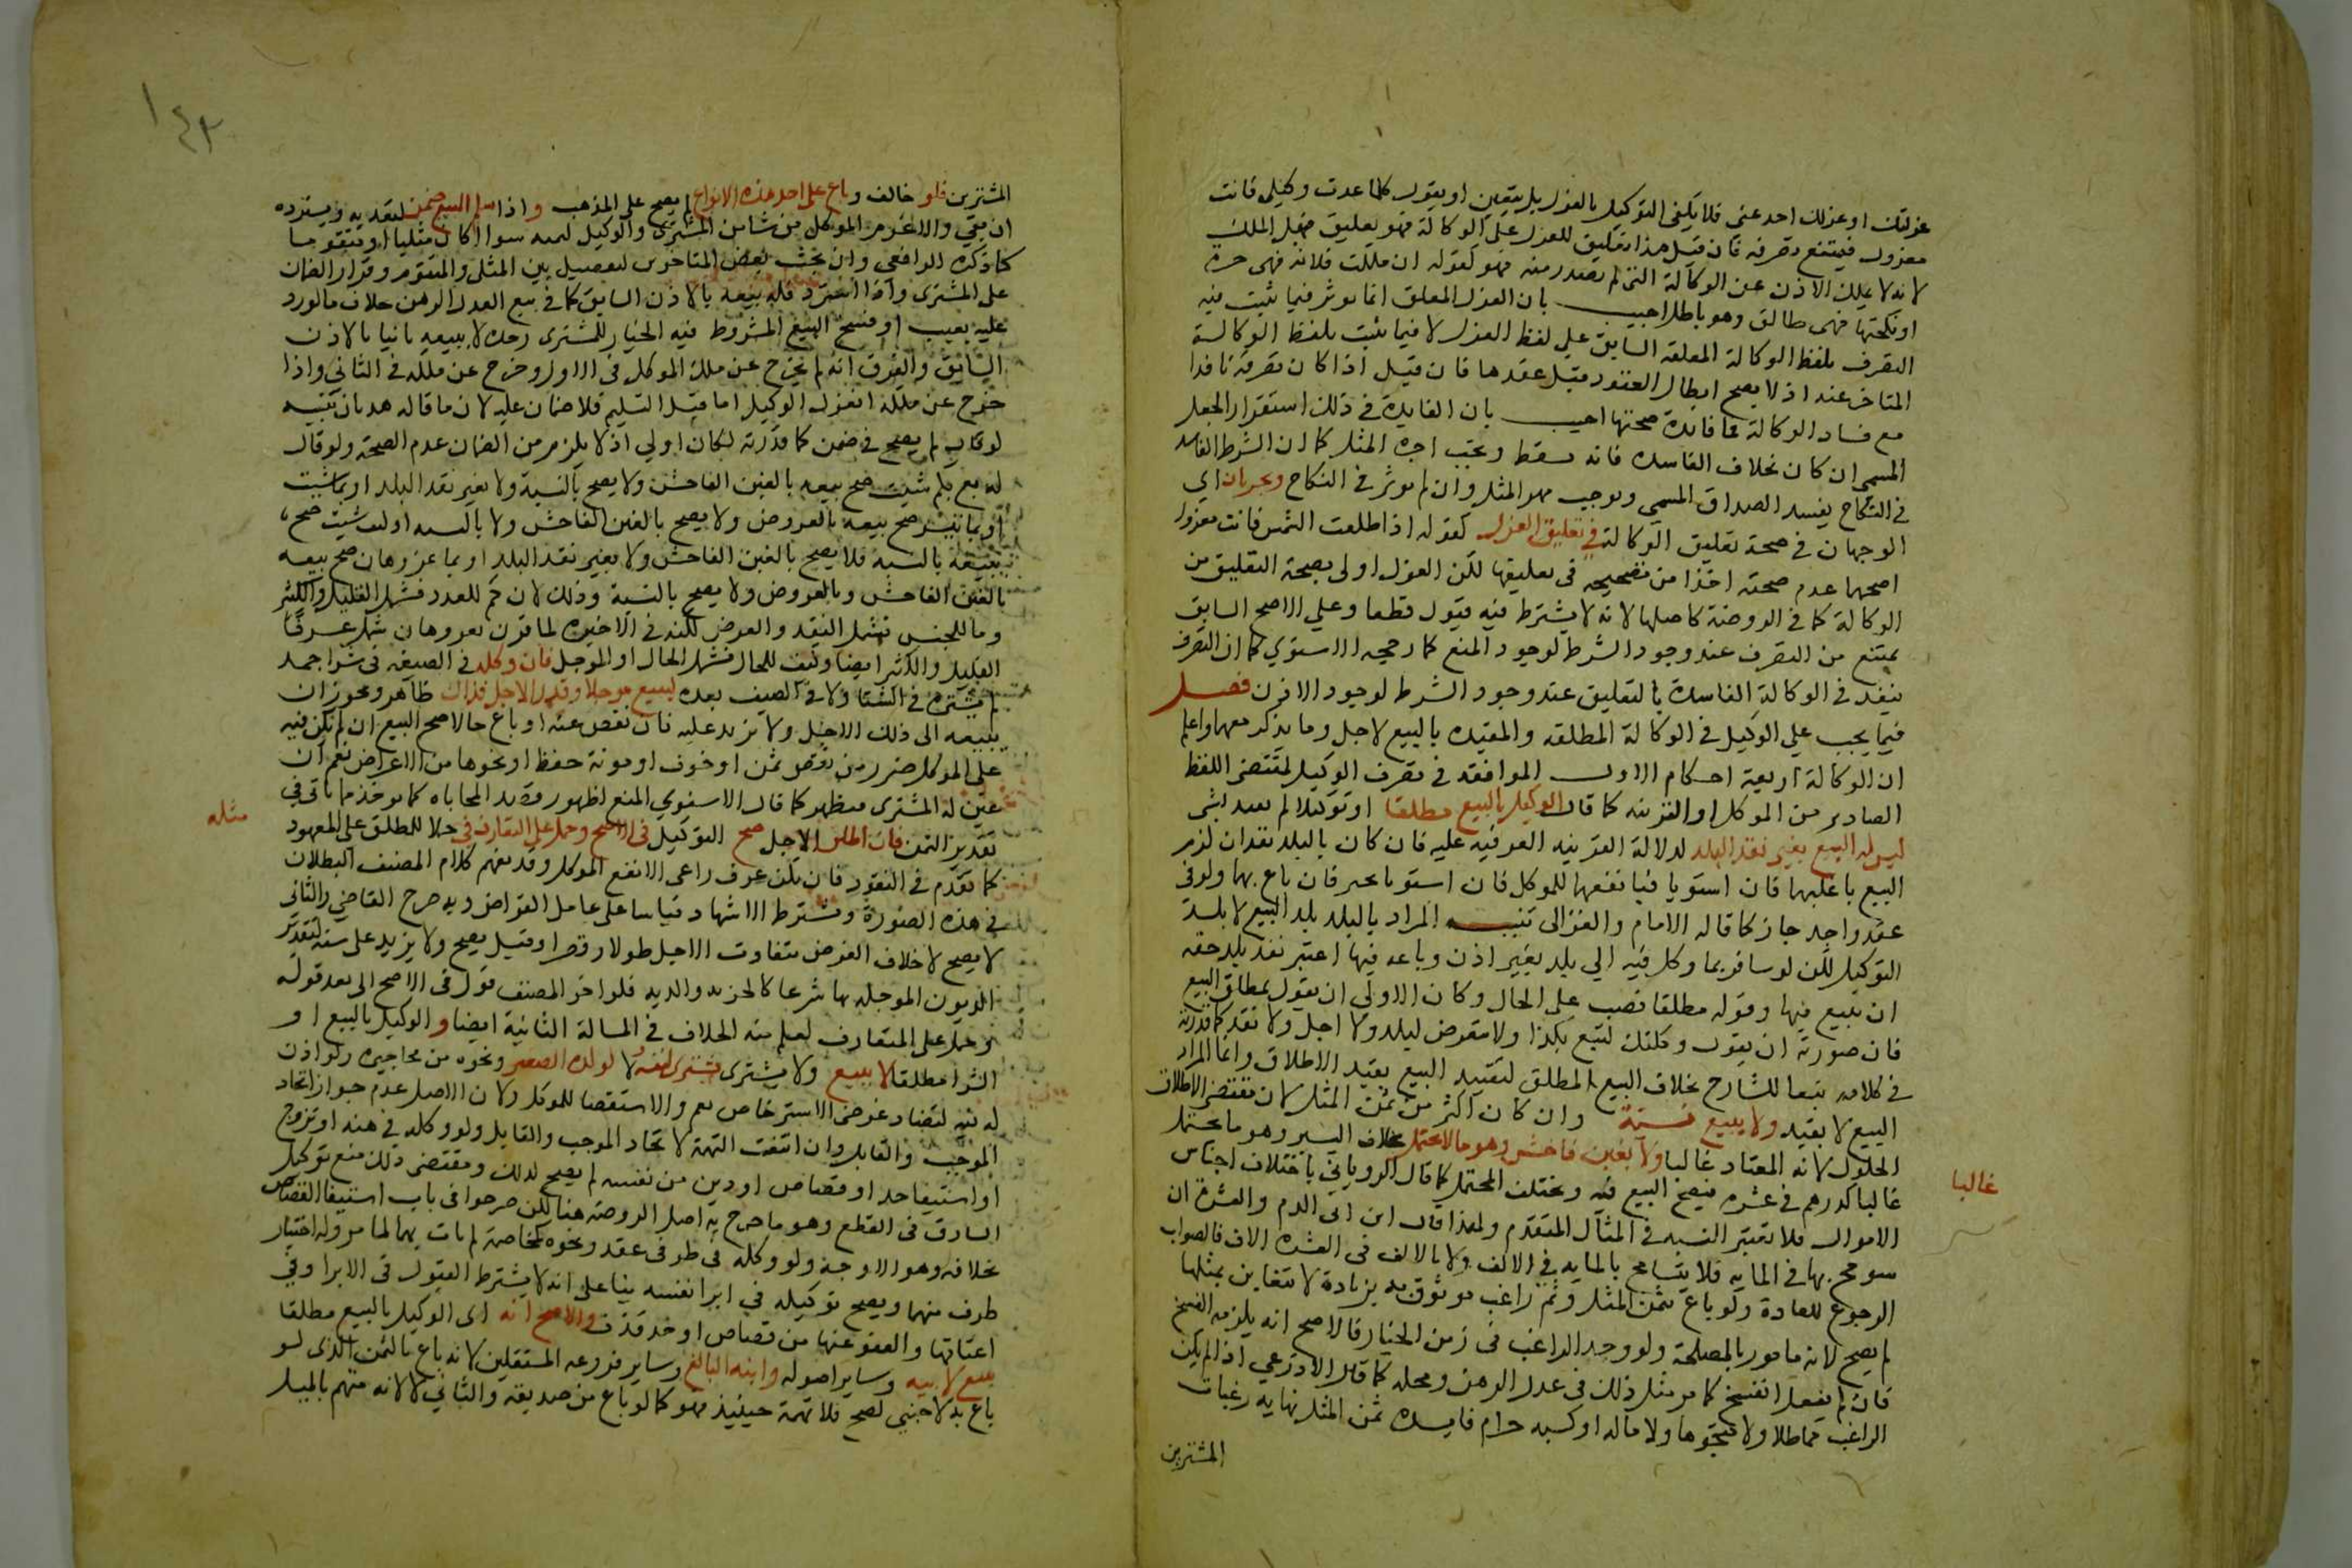 عزلتك او عزلك احد عني فلا يكفي التوكيل بالعزل بل يتعين او يقول كلما عدت وكيلي فانت
معزول فيمتنع تصرفه فان قيل هذا تعليق للعزل على الوكالة فهو تعليق قبل الملك
لانه لا يملك الاذن عن الوكالة التي لم تصدر منه فهو كقوله ان ملكت فلانة فهي حرة
او نكحتها فهي طالق وهو باطل اجيب بان العزل المعلق انما يوثر فيما يثبت فيه
التصرف بلفظ الوكالة المعلقه السابق على لفظ العزل لا فيما يثبت بلفظ الوكالة
المتاخر عنه اذ لا يصح ابطال العقود قبل عقدها فان قيل اذا كان تصرفه نافذا
مع فساد الوكالة فما فايدة صحتها اجيب بان الفايدة في ذلك استقرار الجعل
المسمى ان كان بخلاف الفاسده فانه يسقط ويجب اجرة المثل كما ان الشرط الفاسد
في النكاح يفسد الصداق المسمى ويوجب مهر المثل وان لم يوثر في النكاح ويجريان اي
الوجهان في صحة تعليق الوكالة في تعليق العزل كقوله اذا طلعت الشمس فانت معزول
اصحهما عدم صحته اخذا من تصحيحه في تعليقها لكن العزل اولى بصحة التعليق من
الوكالة كما في الروضة كاصلها لانه لا يشترط فيه قبول قطعا وعلى الاصح السابق
يمتنع من التصرف عند وجود الشرط لوجود المنع كما رجحه الاسنوي كما ان التصرف
ينفذ في الوكالة الفاسدة بالتعليق عند وجود الشرط لوجود الاذن فصل
فيما يجب على الوكيل في الوكالة المطلقه والمقيده بالبيع لاجل وما يذكر معهما واعلم
ان الوكالة اربعة احكام الاول الموافقة في تصرف الوكيل لمقتضى اللفظ
الصادر من الموكل او القرينه كما قال الوكيل بالبيع مطلقا او توكيلا لم يقيد بشي
ليس له البيع بغير نقد البلد لدلالة القرينه العرفيه عليه فان كان بالبلد نقدان لزم
البيع باغلبهما فان استويا فبانفعهما للموكل فان استويا تخير فان باع بهما ولو في
عقد واحد جاز كما قاله الامام والغزالي تنبيه المراد بالبلد بلد البيع لا بلد
التوكيل لكن لو سافر بما وكل فيه الى بلد بغير اذن وباعه فيها اعتبر نقد بلد حقه
ان يبيع فيها وقوله مطلقا نصب على الحال وكان الاولى ان يقول بمطلق البيع
فان صورته ان يقول وكلتك لتبيع بكذا ولا يتعرض لبلد ولا اجل ولا نقد كما قدرته
في كلامه تبعا للشارح بخلاف البيع المطلق لتقييد البيع بقيد الاطلاق وانما المراد
البيع لا بقيد ولا يبيع نسئة وان كان اكثر من ثمن المثل لان مقتضى الاطلاق
الحلول لانه المعتاد غالبا ولا بغبن فاحش وهو ما لا يحتمل بخلاف اليسير وهو ما يحتمل
غالبا كدرهم في عشره فيصح البيع فيه ويختلف المحتمل كما قال الروياني باختلاف اجناس
الاموال فلا تعتبر النسبه في المثال المتقدم ولهذا قال ابن ابي الدم والعشرة ان
سومح بها في المايه فلا يتسامح بالمايه في الالف ولا بالالف في العشره الاف فالصواب
الرجوع للعادة ولو باع بثمن المثل وثم راغب موثوق به بزيادة لا يتغابن بمثلها
لم يصح لانه مامور بالمصلحة ولو وجد الراغب في زمن الخيار فالاصح انه يلزمه الفسخ
فان لم يفعل انفسخ كما مر مثل ذلك في عدل الرهن ومحله كما قال الاذرعي اذا لم يكن
الراغب مماطلا ولا متجوها ولا ماله او كسبه حرام فايده ثمن المثل نهاية رغبات
المشترين
غالبا
١٤٣
المشترين فلو خالف وباع على احد هذه الانواع لم يصح على المذهب واذا سلم المبيع ضمن لتعديه ويسترده
ان بقي والا غرم الموكل من شا من المشتري والوكيل قيمته سوا اكان مثليا او متقوما
كما ذكره الرافعي وان بحث بعض المتاخرين تفصيل بين المثلي والمتقوم وقرار الضمان
على المشتري واذا استرد فله بيعه بالاذن السابق كما في بيع العدل الرهن خلاف ما لو رد
عليه بعيب او فسخ البيع المشروط فيه الخيار للمشتري وحده لا يبيعه ثانيا بالاذن
السابق والفرق انه لم يخرج عن ملك الموكل في الاول وخرج عن ملكه في الثاني واذا
خرج عن ملكه انعزل الوكيل اما قبل التسليم فلا ضمان عليه لان ما قاله هديان تنبيه
لو قال لم يصح في ضمن كما قدرته لكان اولي اذ لا يلزم من الضمان عدم الصحة ولو قال
له بع بكم شيت صح بيعه بالغبن الفاحش ولا يصح بالنسية ولا بغير نقد البلد او بما شيت
او بما تيسر صح بيعه بالعروض ولا يصح بالغبن الفاحش ولا بالنسيه او كيف شيت صح
بيعه بالنسية فلا يصح بالغبن الفاحش ولا بغير نقد البلد او بما عز وهان صح بيعه
بالغبن الفاحش وبالعروض ولا يصح بالنسية وذلك لان كم للعدد فشمل القليل والكثير
وما للجنس فشمل النقد والعرض لكنه في الاخيره لما قرن بعز وهان شمل عرفا
القليل والكثير ايضا وكيف للحال فشمل الحال او الموجل فان وكله في الصيغه في شرا جمد
لم يشتره في الشتا ولا في الصيف بعده ليبيع موجلا وقدر الاجل فذاك ظاهر ويجوز ان
يبيعه الى ذلك الاجل ولا يزيد عليه فان نقص عنه او باع حالا صح البيع ان لم يكن فيه
على الموكل ضرر من نقص ثمن او خوف او مونة حفظ او نحوها من الاغراض نعم ان
عين له المشتري فيظهر كما قال الاسنوي المنع لظهور قصد المحاباه كما يوخذ مما ياتي في
تقدير الثمن فان اطلق الاجل صح التوكيل في الاصح وحمل على المتعارف في حملا للمطلق على المعهود
كما تقدم في النقود فان لم يكن عرف راعى الانفع للموكل وقد يفهم كلام المصنف البطلان
في هذه الصورة ويشترط الاشهاد قياسا على عامل القراض وبه صرح القاضي والثاني
لا يصح لاختلاف الغرض بتفاوت الاجل طولا وقصرا وقيل يصح ولا يزيد على سنة لتقدير
الديون الموجله بها شرعا كالجزيه والديه فلو اخر المصنف قوله في الاصح الى بعد قوله
وحمل على المتعارف لعلم منه الخلاف في المسالة الثانية ايضا والوكيل بالبيع او
الشرا مطلقا لا يبيع ولا يشتري لنفسه ولا لولده الصغير ونحوه من محاجيره ولو اذن
له فيه لتضاد غرضي الاسترخاص لهم والاستقصا للموكل ولان الاصل عدم جواز اتحاد
الموجب والقابل وان انتفت التهمة لاتحاد الموجب والقابل ولو وكله في هبه او تزوج
او استيفا حد او قصاص او دين من نفسه لم يصح لذلك ومقتضى ذلك منع توكيل
السارق في القطع وهو ما صرح به اصل الروضة هنا لكن صرحوا في باب استيفا القصاص
بخلافه وهو الاوجه ولو وكله في طرفي عقد ونحوه كمخاصمة لم يات بهما لما مر وله اختيار
طرف منهما ويصح توكيله في ابرا نفسه بنا على انه لا يشترط القبول في الابرا وفي
اعتاقها والعفو عنها من قصاص او حد قذف والاصح انه اي الوكيل بالبيع مطلقا
يبيع لابيه وساير اصوله وابنه البالغ وساير فروعه المستقلين لانه باع بالثمن الذي لو
باع به لاجنبي لصح فلا تهمة حينيذ فهو كما لو باع من صديقه والثاني لا لانه متهم بالميل
مثله